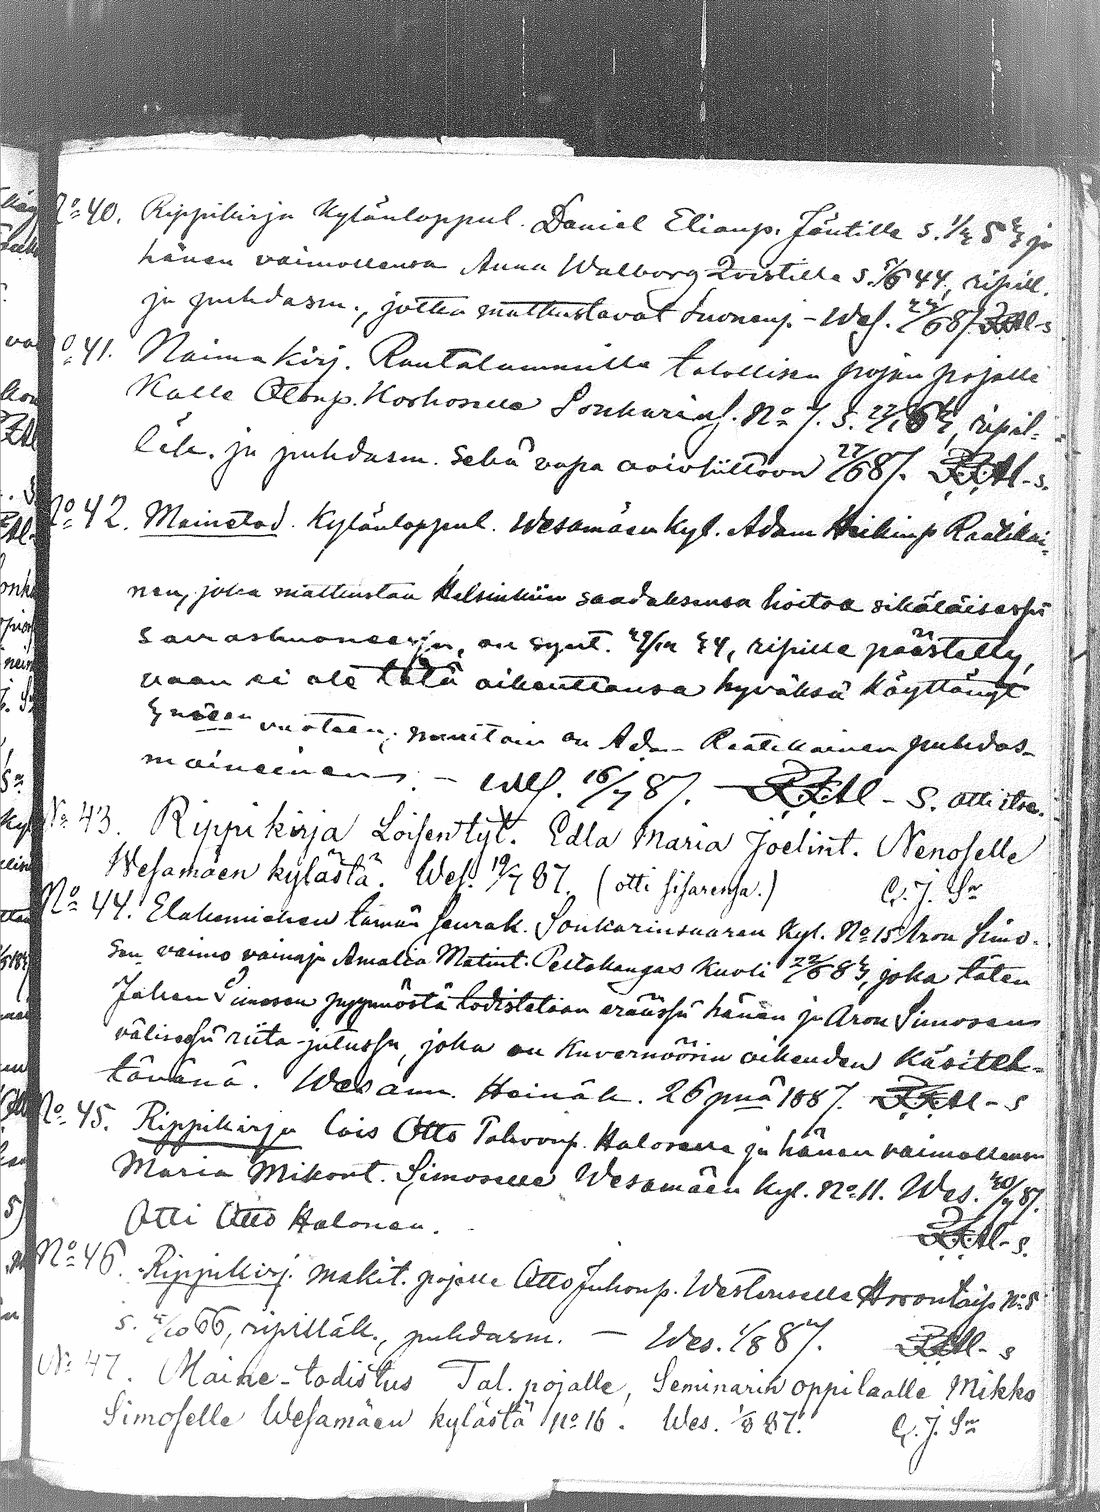 No 40. Rippikirja Kylänloppul. Daniel Eliasp. Jäntille s.
hänen vaimollensa Anna Walborg Qvistille s. 44, ripill.
ja puhdasm., jotka matkustavat Suonenj. - Wes. 87.
No 41. Naima kirj. Rautalammille talollisen pojan pojalle
Kalle Olenp. Korhoselle Sonkarin No 7. s. ripil-
läk. ja puhdasm. sekä vapa avioliittoon 22/6 87.
No 42. Mainetod. Kylänloppul. Wesamäen kyl. Adam Heikinp Raatikai-
nen, joka matkustaa Helsinkiin saadaksensa hoitoa sikäläisessä
sairashuoneessa, on synt. ripille päästetty,
vaan ei ole tätä oikeuttansa hyväksi käyttänyt
vuoteen; muutoin on Adam Raatikainen puhdas-
maineinen. - Wes. 16/7 87. - S. otti itse.
No 43. Rippikirja Loisen tyt. Edla Maria Joelint. Nenoselle
Wesamäen kylästä. Wes. 19/7 87. (otti sisarensa.)
No 44. Elakemiehen tämän seurak. Sonkarinsaaren kyl. No 15 Aron Simo-
sen vaimo vainaja Amalia Matint. Peltokangas kuoli joka täten
Johan Simosen pyynnöstä todistetaan eräässä hänen ja Aron Simosen
välisessä riita-jutussa, joka on Kuvernöörin oikeuden käsitel-
tävänä. Wesann. Heinäk. 26 pnä 1887.
No 45. Rippikirja lois Otto Tahvonp. Haloselle ja hänen vaimollensa
Maria Mikont. Simoselle Wesamäen kyl. No 11. Wes. 87.
Otti Otto Halonen.
No 46. Rippikirj. makit. pojalle Otto Juhonp. Westeriselle
s. 66, ripilläk., puhdasm. - Wes. 1/8 87.
No 47. Maine-todistus Tal. pojalle, Seminarin oppilaalle Mikko
Simoselle Wesamäen kylästä No 16. Wes. 1/8 87.